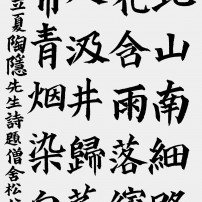 北山南細路
花含雨落繽
人汲井歸茅
帶青烟染白
立夏陶隱先生詩題僧舍松